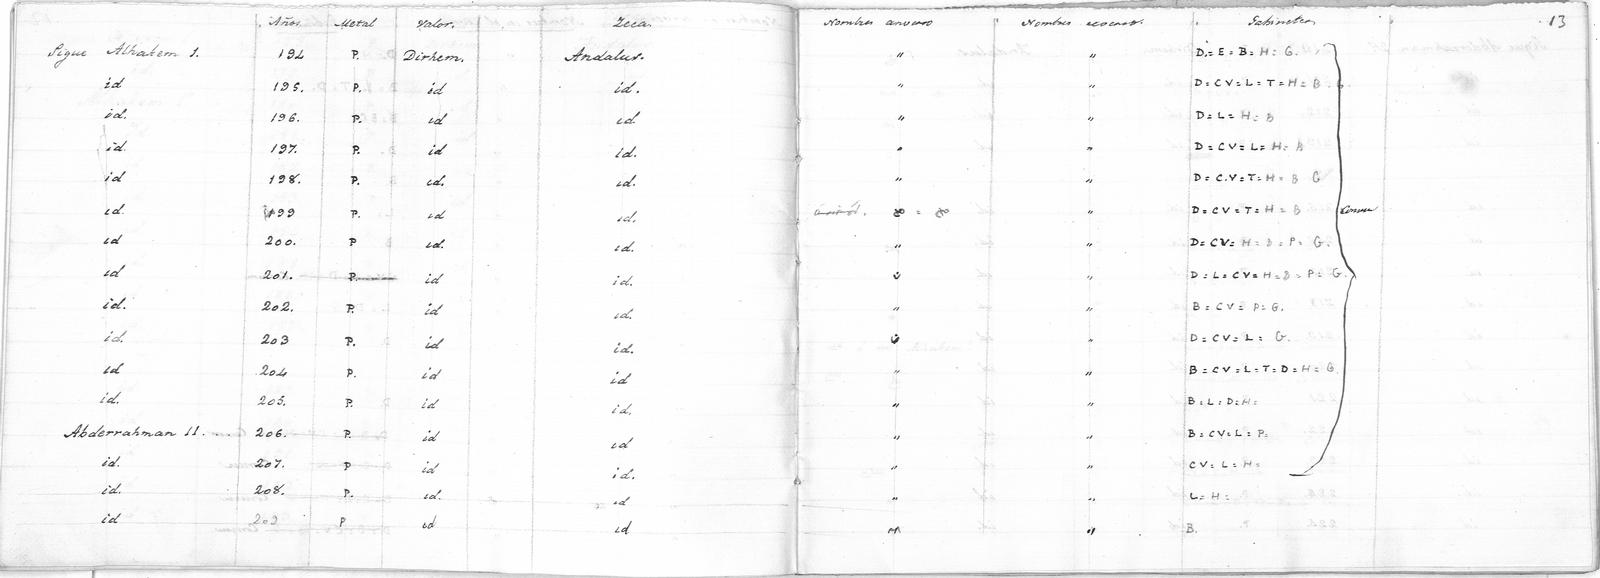 Años. Metal Valor. Zeca. Nombres anverso Nombres reverso. Gabinetes. 13
Sigue Alhakem I. 194 P. Dirhem. Andalus. " " D = E = B = H = G.
id 195. P. id id. " " D = CV = L = T = H = B. G
id. 196. P. id id " " D = L = H = B
id. 197. P. id id. " " D = CV = L = H = B
id 198. P. id. id. " " D = C.V = T = H = B G
id. 199 P. id id. " D = CV = T = H = B
id 200. P id. id. " " D = CV = H = B = P = G.
id 201. P. id id. " " D = L = CV = H = B = P = G.
id. 202. P. id id. " " B = CV = P = G.
id. 203 P. id id. " " D = CV = L = G.
id 204 P. id id " " B = CV = L = T = D = H = G.
id. 205. P. id id. " " B = L = D = H =
Abderrahman II. 206. P. id id " " B = CV = L = P.
id. 207. P id id. " " CV = L = H =
id. 208. P. id. id " " L = H =
id 209 P id id " " B.